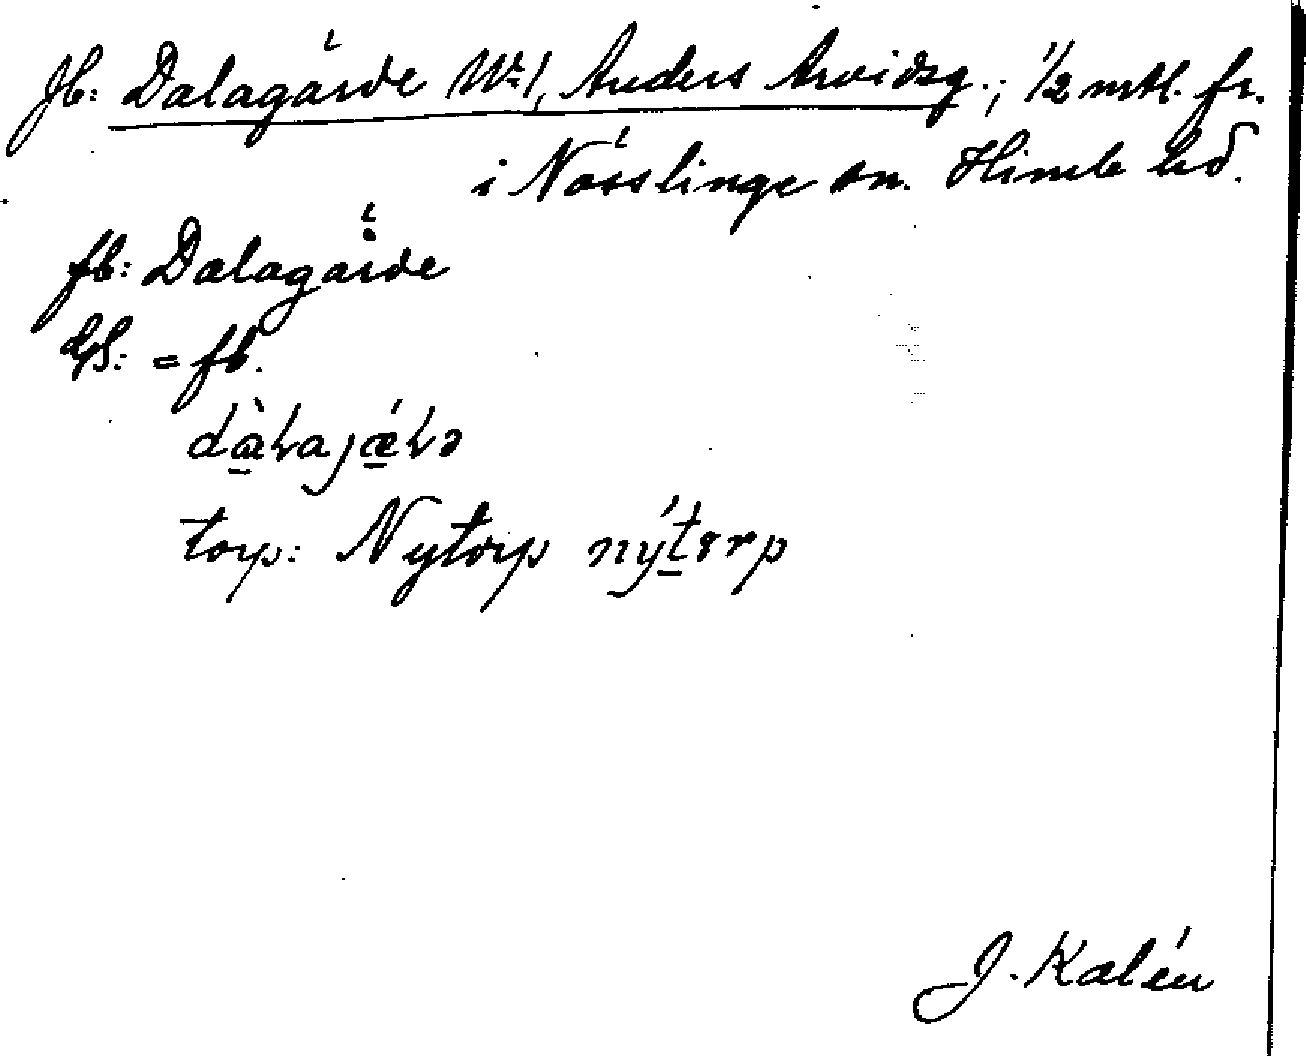 Jb: Dalagärde No 1, Anders Arvidsg.; 1/2 mtl. fr.
i Nösslinge sn. Himle hd.
fb: Dalagärde
GS: = fb.
torp: Nytorp
J. Kalén